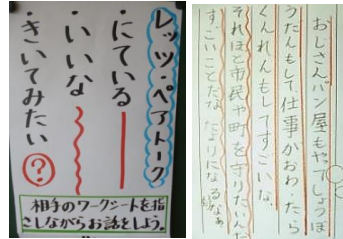 レッツ・ペアトーク
・にている
・いいな
・きいてみたい ?
相手のワークシートを指
さしながらお話をしよう。
おじさん、パン屋もやってしょうぼ
うだんもして、仕事がおわったら
くんれんもしてすごいな。
それほど市民や町を守りたいんだ
すごいことだな たよりになるなぁ